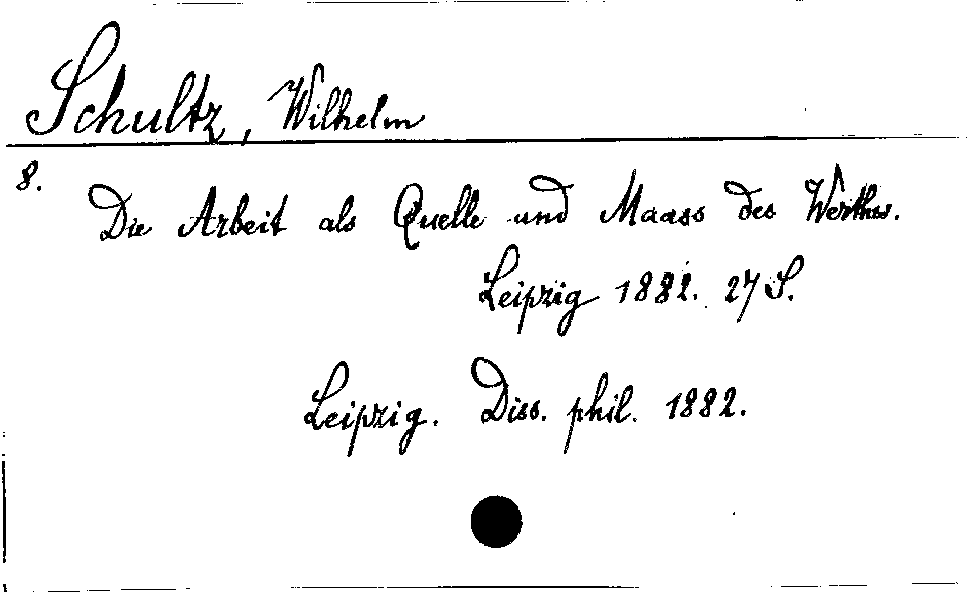 Schultz, Wilhelm
8.
Die Arbeit als Quelle und Maass des Werthes.
Leipzig 1882. 27 S.
Leipzig. Diss. phil. 1882.